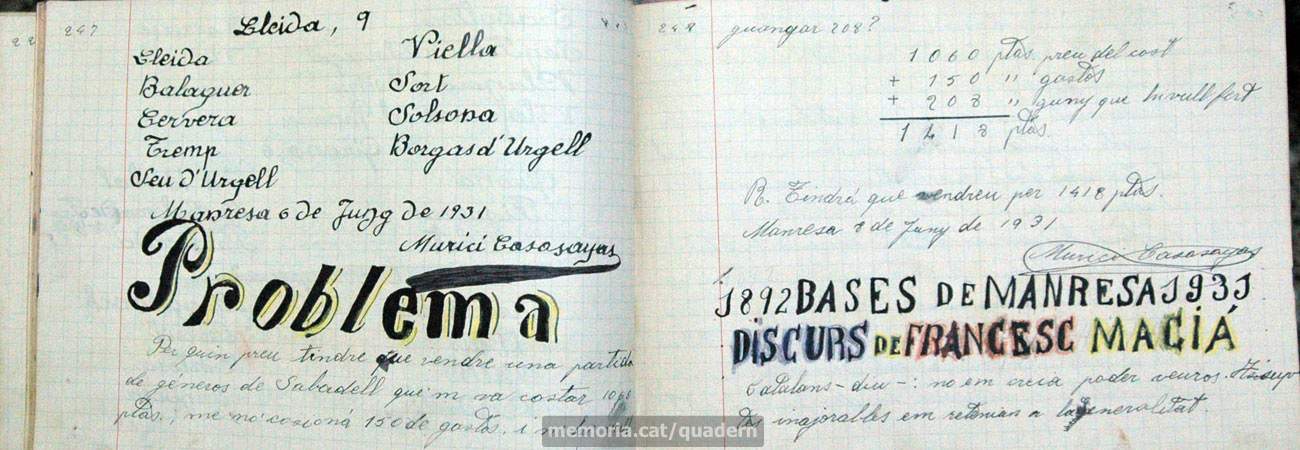 247
Lleida, 9
Lleida
Balaguer
Cervera
Tremp
Seu d'Urgell
Viella
Sort
Solsona
Borgas d'Urgell
Manresa 6 de Juny de 1931
Murici Casasayas
Problema
Per quin preu tindre que vendre una partida
de géneros de Sabadell que m va costar 1060
ptas., me 150 de gastos. i
248
guanyar 208?
1060 ptas. preu del cost
+ 150 " gastos
+ 208 " guany que hi vull fert
1418 ptas.
R. Tindrá que vendreu per 1418 ptas.
Manresa 8 de Juny de 1931
Murici Casasayas
1892 BASES DE MANRESA 1931
DISCURS DE FRANCESC MACIÁ
Catalans - diu -: no em creia poder veuros.
tos inajorables em retenian a la Generalitat.
memoria.cat/quadern